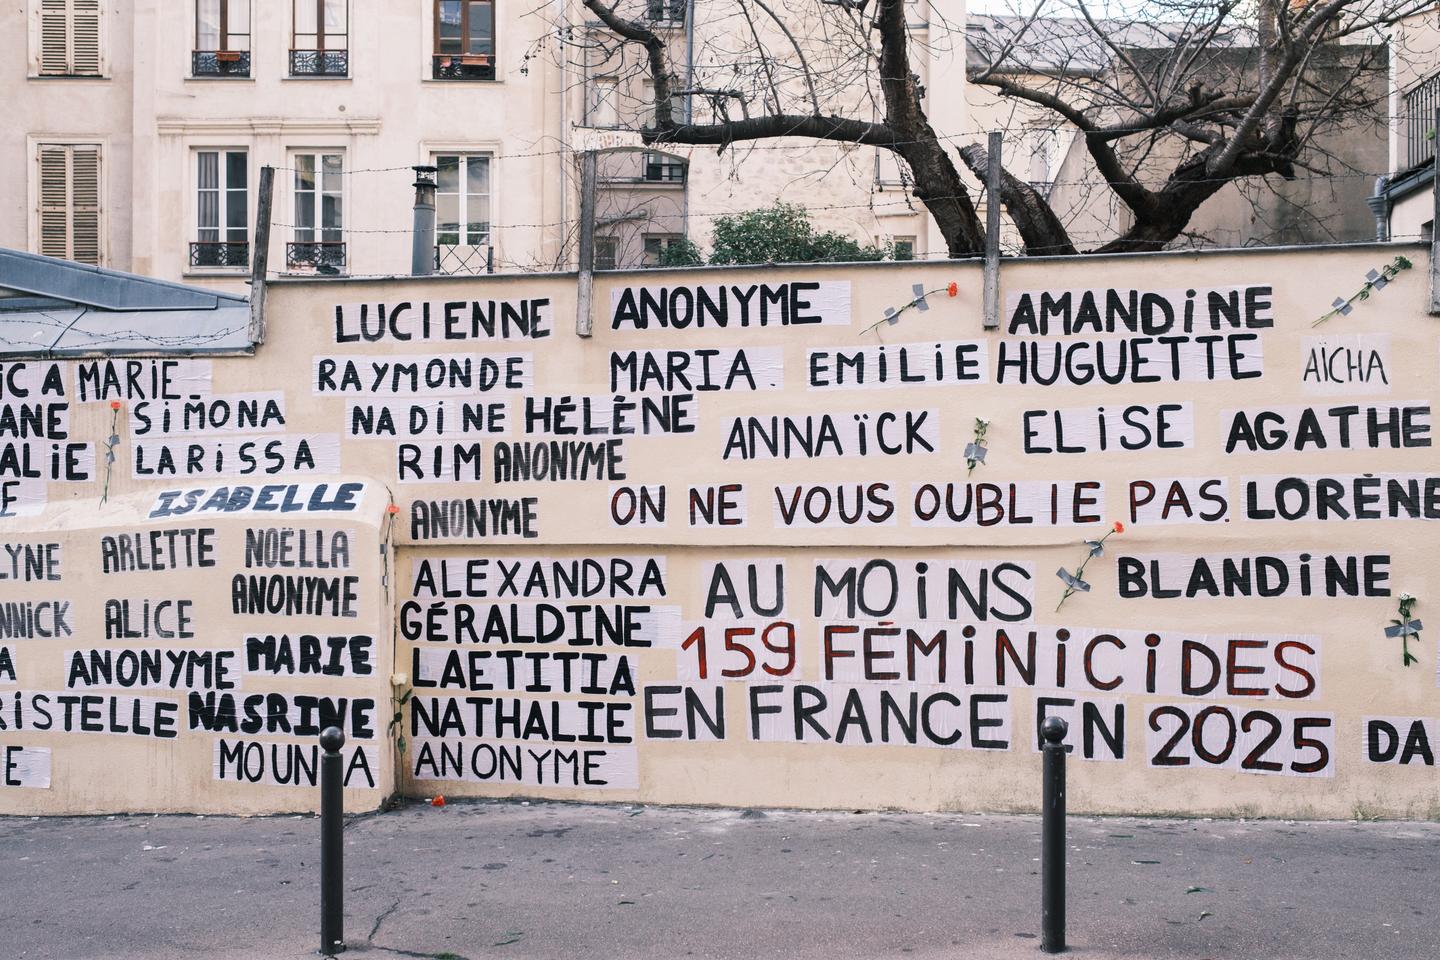 LUCIENNE ANONYME AMANDiNE
MARIE RAYMONDE MARIA. EMiLiE HUGUETTE AÏCHA
SiMONA NADiNE HÉLÈNE ANNAÏCK ELiSE AGATHE
LARiSSA RIM ANONYME
ISABELLE ANONYME ON NE VOUS OUBLIE PAS. LORÈNE
ARLETTE NOËLLA ALEXANDRA AU MOiNS BLANDiNE
ALICE ANONYME GÉRALDINE 159 FÉMiNiCiDES
ANONYME MARIE LAETITIA
NASRINE NATHALIE EN FRANCE EN 2025 DA
ANONYME